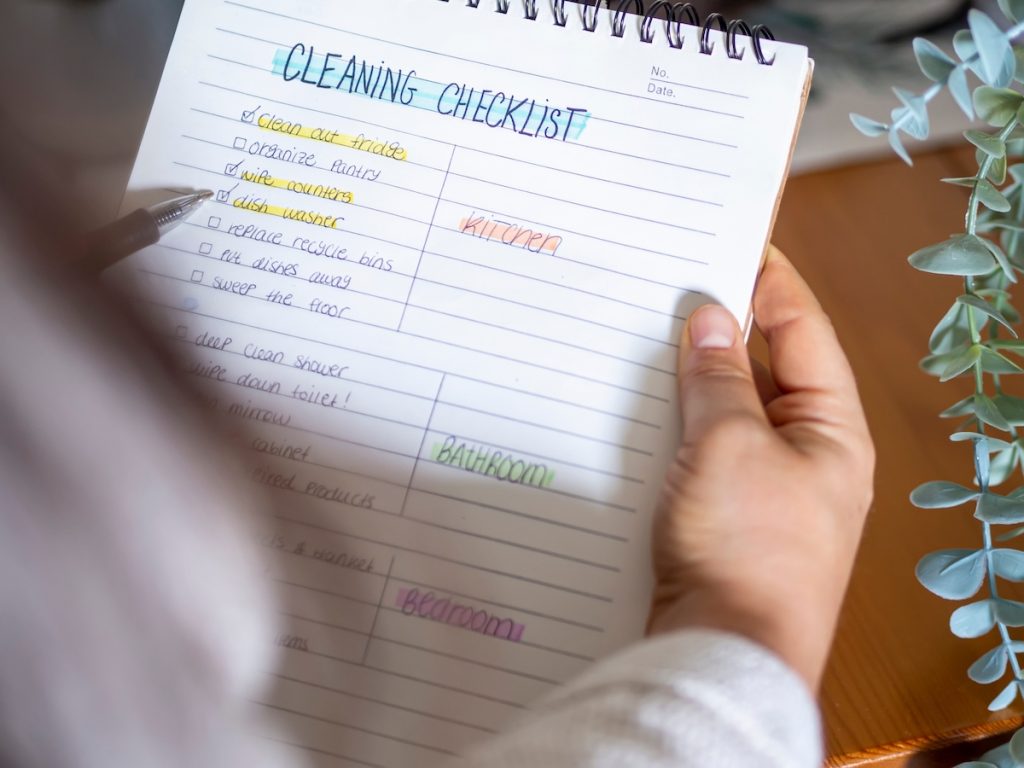 No.
Date.
CLEANING CHECKLIST
clean out fridge
organize pantry
wipe counters
dish washer
replace recycle bins
put dishes away
sweep the floor
Kitchen
deep clean shower
wipe down toilet!
mirrow
cabinet
products
BATHROOM
& blanket
Bedroom